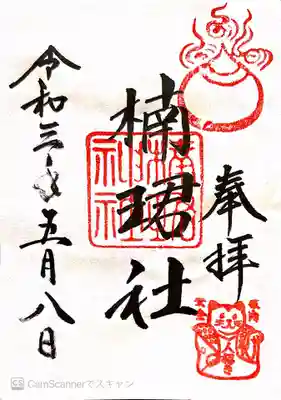 奉拝
楠珺社
令和三年五月八日
CS CamScannerでスキャン